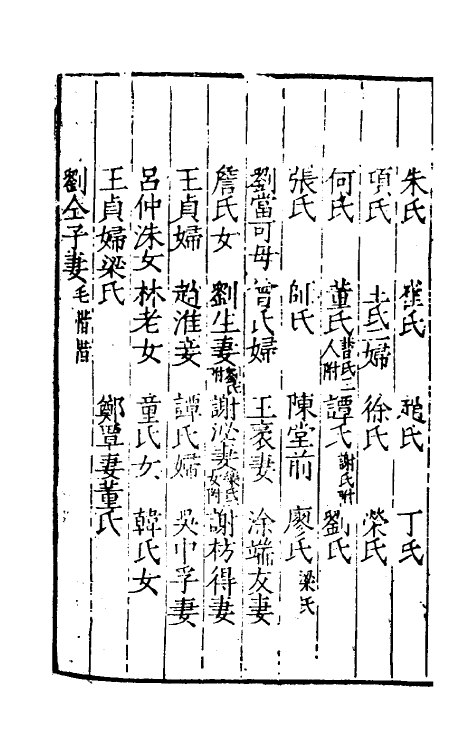 朱氏 崔氏 趙氏 丁氏
項氏 王氏二婦 徐氏 榮氏
何氏 董氏 氏二人附 譚氏 謝氏附 劉氏
張氏 師氏 陳堂前 廖氏 梁氏
劉當可母 曾氏婦 王袤妻 涂端友妻
詹氏女 劉生妻 氏附 謝泌妻 樂氏女附 謝枋得妻
王貞婦 趙淮妾 譚氏婦 吳中孚妻
呂仲洙女 林老女 童氏女 韓氏女
王貞婦梁氏 鄭覃妻董氏
劉仝子妻 毛惜惜